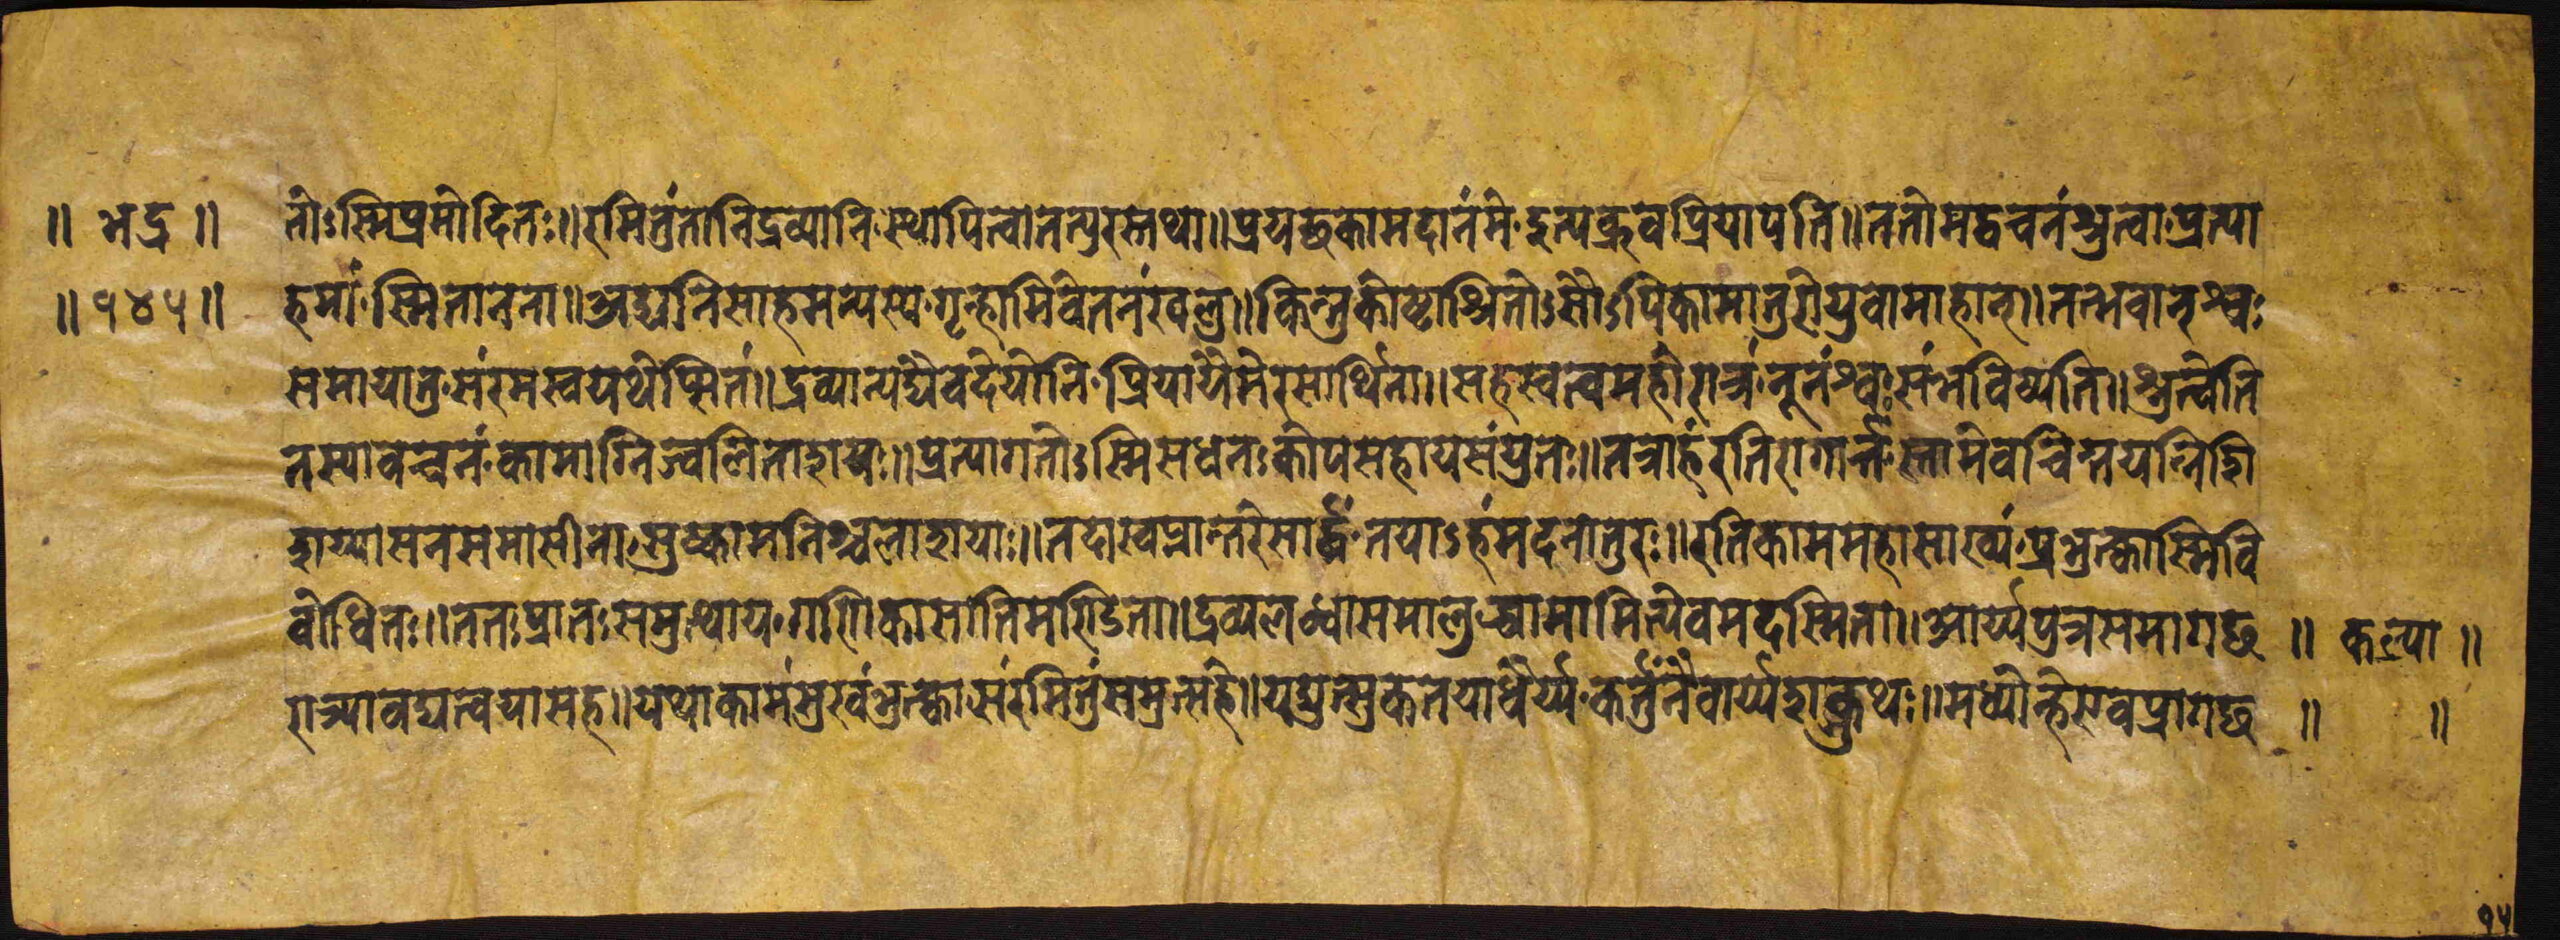 ॥ भद्र ॥ तोऽस्मि प्रमोदितः ॥ रमितुं तानि द्रव्याणि स्थापित्वा तत्पुरस्तथा ॥ प्रयछ कामदानं मे इत्यक्रुव प्रियापति ॥ ततो मद्वचनं श्रुत्वा प्रत्या
॥ १४५ ॥ ह मां स्मितानना ॥ अद्य निसाहमन्यस्य गृह्णामि वेतनं खलु ॥ किन्तु कोष्टाश्रितोऽसोऽपि कामातुरो युवा माहान् ॥ तद्भवान् श्वः
समायातु संरमस्व यथेप्सितं ॥ द्रव्यान्यद्यैव देयानि प्रियायै मे रसार्थिना ॥ सहस्व त्वमहोरात्रं नूनं श्वः संभविष्यति ॥ श्रुत्वेति
तस्या वचनं कामाग्निज्वलिताशयः ॥ प्रत्यागतोऽस्मि सधनः कोपसहायसंयुतः ॥ तत्राहं रतिरागार्त्तः तामेव चिन्तयन्निशि
शय्यासनसमासीनो सुष्काम निश्चलाशयाः ॥ तदा स्वप्नान्तरे सार्द्धं तयाऽहं मदनातुरः ॥ रतिकाममहासौख्यं प्रभुक्त्वास्मि वि
बोधितः ॥ ततः प्रातः समुत्थाय गणिका सातिमण्डिता ॥ द्रव्यलब्धा समालुच्य मामित्येवमदस्मिता ॥ आर्य्यपुत्र समागछ ॥ कल्या ॥
रात्र्यावद्य त्वया सह ॥ यथाकामं सुखं भुक्त्वा संरमितुं समुत्सहे ॥ यद्युत्सुकतया धैर्य्यं कर्तुं नैवार्य्य शक्रुथः ॥ मध्याह्न एव प्रागछ ॥ ॥
१५